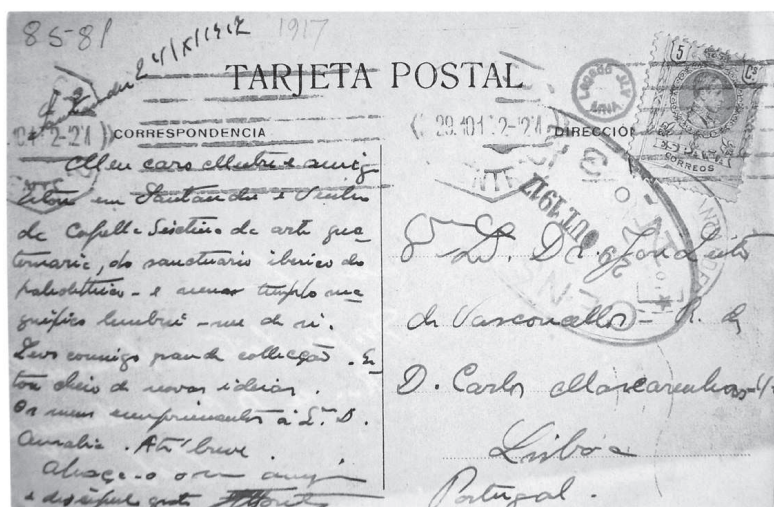 85-81
1917
Santander 24/X/1917
TARJETA POSTAL
CORRESPONDENCIA
DIRECCIÓN
29.10.1 12-12
5 Cs
CORREOS
29 OUT 1917
Meu caro Mestre e amig
Estou em Santander e venho
da Capella Sixtina da arte qua-
ternaria, do sanctuario iberico do
paleolithico - e nesse templo ma-
gnifico lembrei-me de si.
Levo commigo grande collecção. Es-
tou cheio de novas ideias.
Os meus cumprimentos á Sr.ª D.
Aurelia. Até breve.
Abraça-o o seu amigo
e discipulo grato
Dr. José Leite
de Vasconcellos - R. de
D. Carlos Mascarenhas
Lisbôa
Portugal.